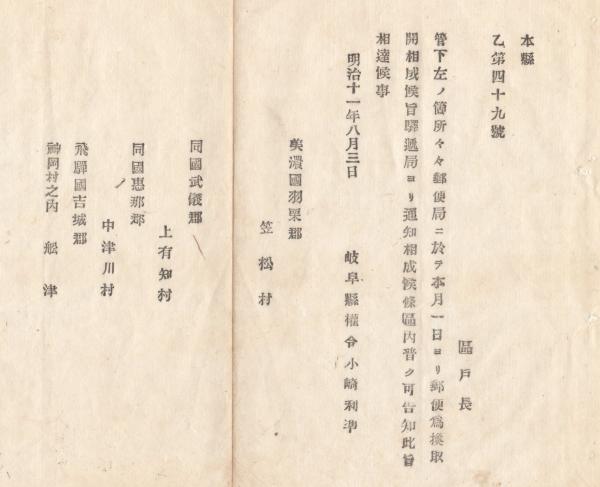 本縣
乙第四十九號
區戸長
管下左ノ箇所々々郵便局ニ於テ本月一日ヨリ郵便爲換取
開相成候旨驛遞局ヨリ通知相成候條區内普ク可告知此旨
相達候事
明治十一年八月三日　岐阜縣權令小崎利準
美濃國羽栗郡
笠松村
同國武儀郡
上有知村
同國惠那郡
中津川村
飛驒國吉城郡
神岡村之内　舩津